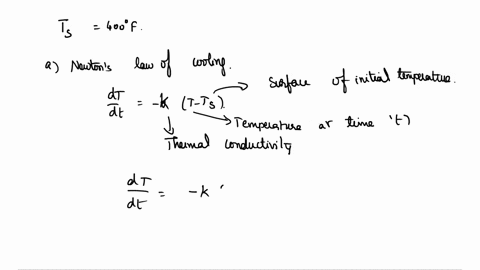 Ts = 400°F.
a) Newton's law of cooling.
dT/dt = -k (T-Ts).
Surface of initial temperature.
Temperature at time 't)
Thermal conductivity
dT/dt = -k